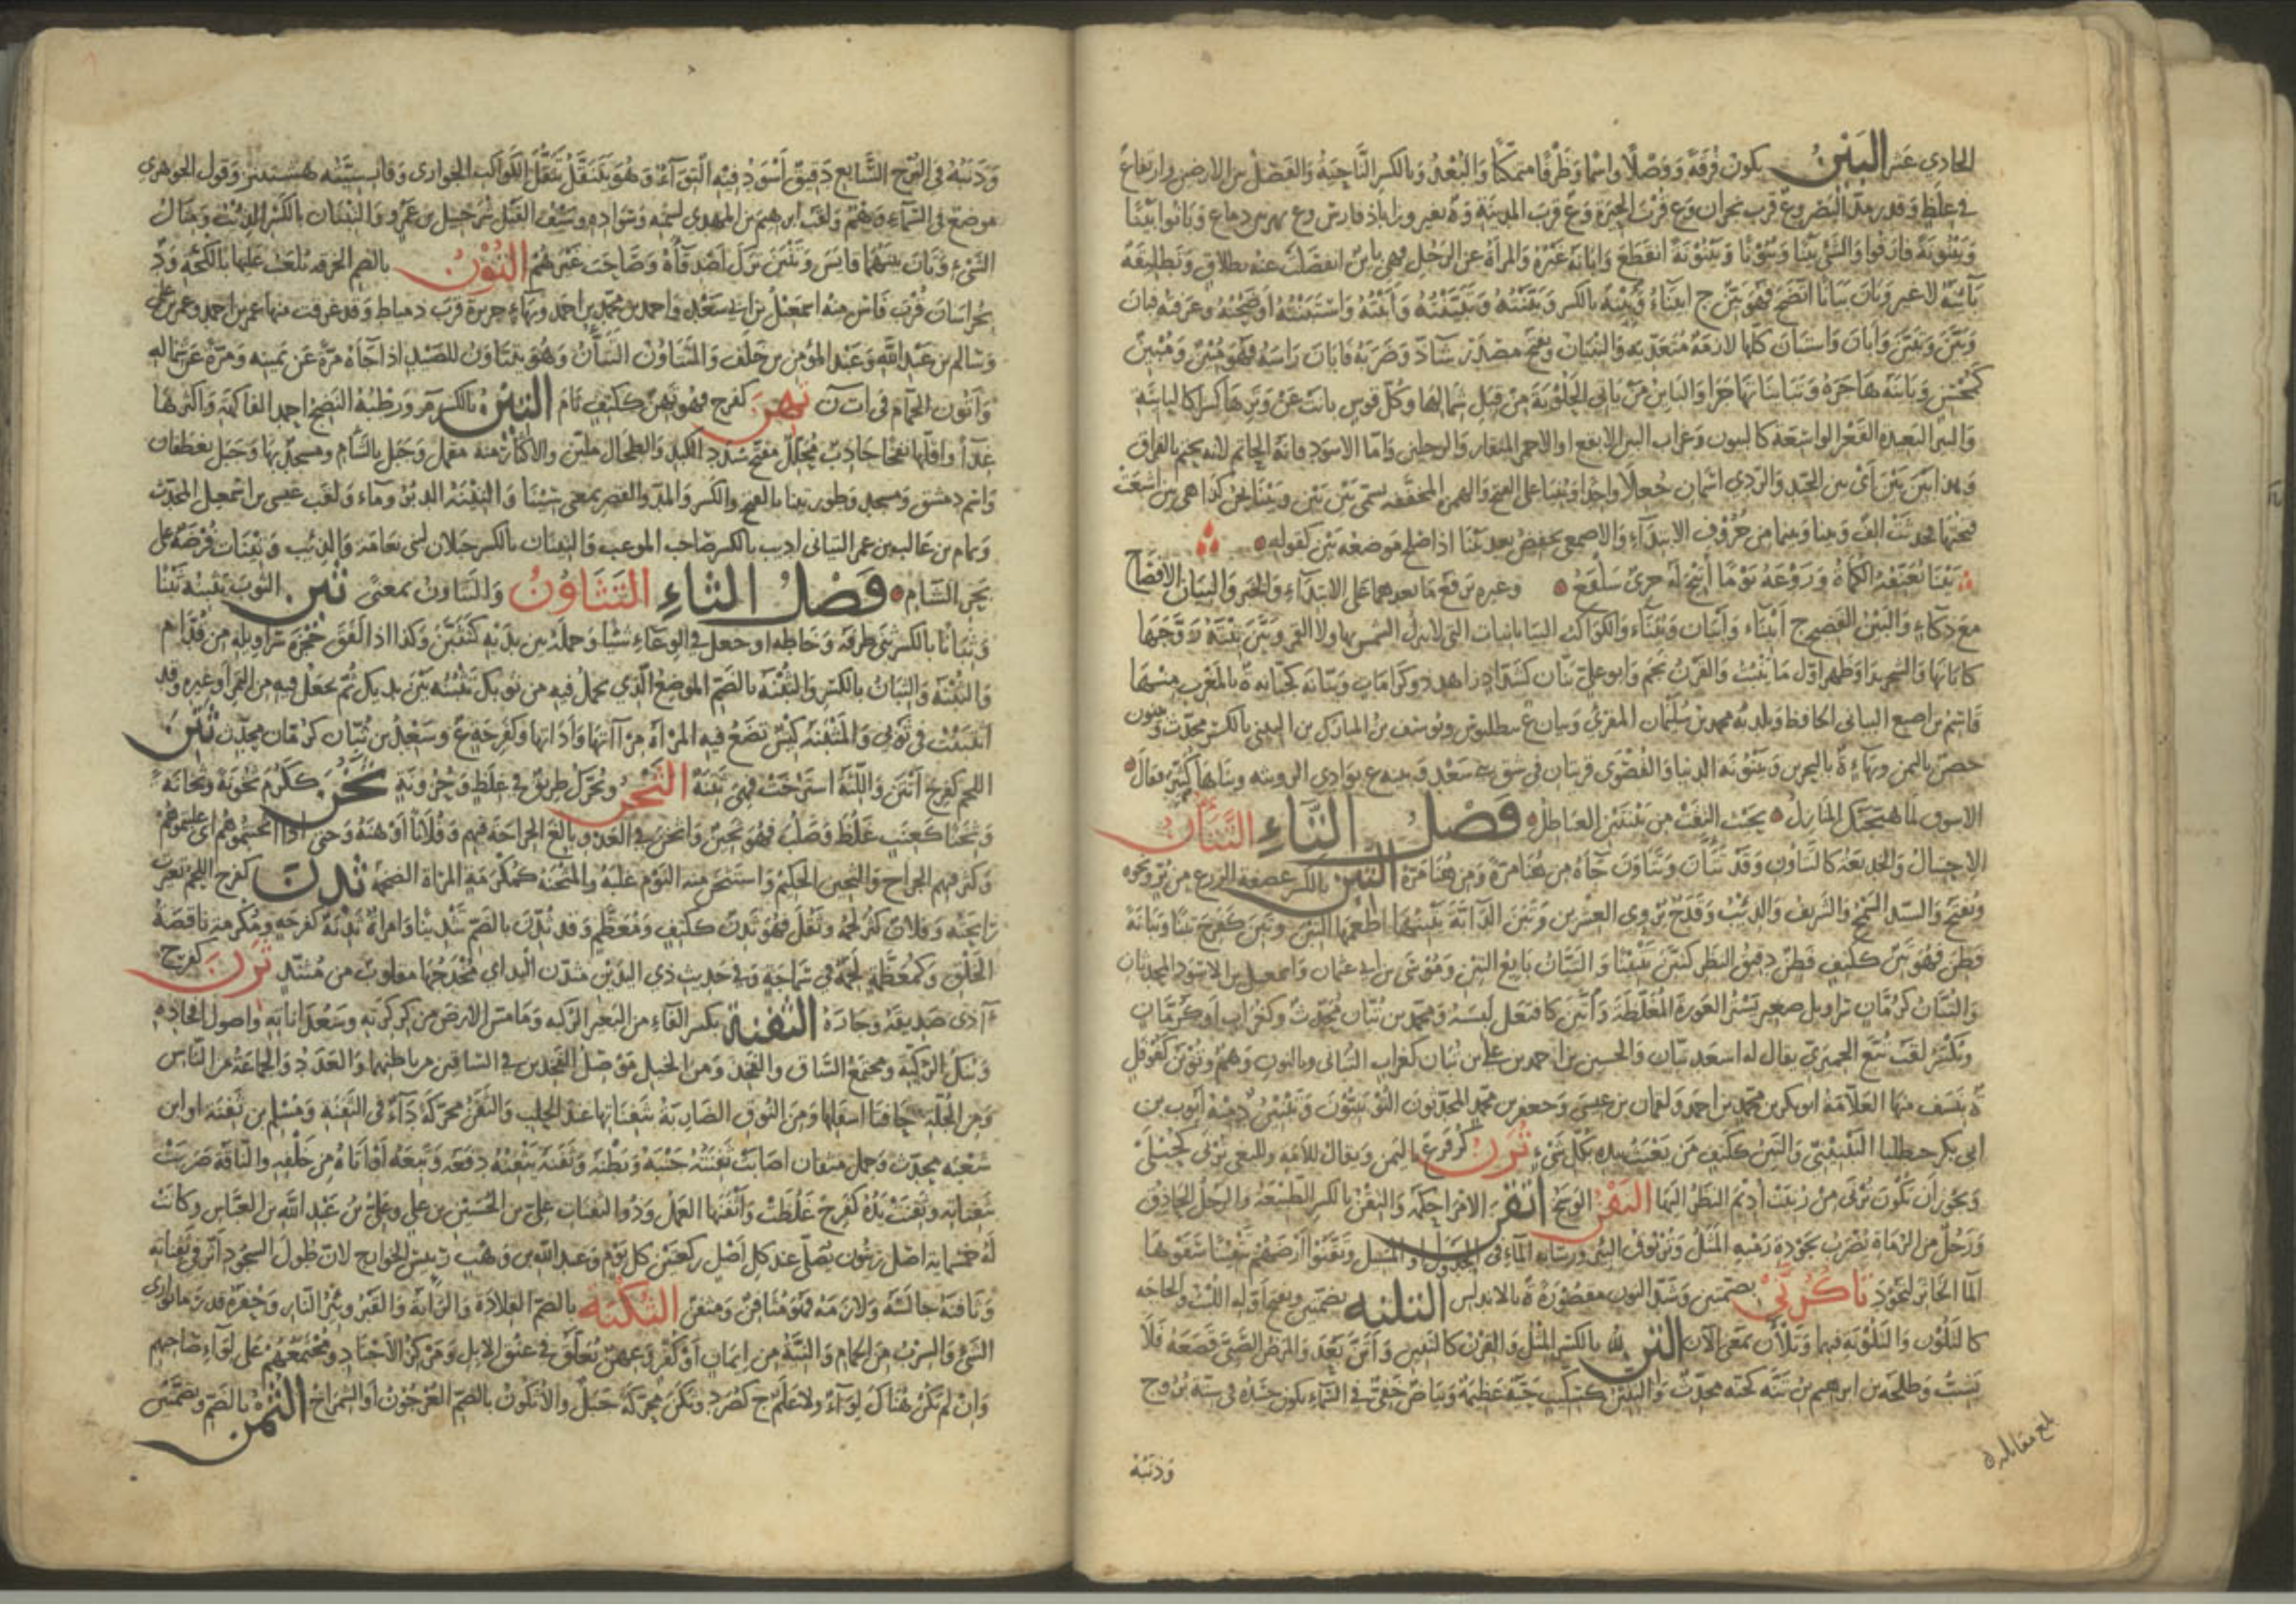 الحادى عشر البَيْنُ يكون فُرقَةً وَوَصْلًا واسْمًا وَظَرْفًا متمكّنًا وَالبُعْدُ وَبالكسر النَّاحِيَةُ وَالفَصْلُ بين الارضين وارتفاعٌ
في غِلَظٍ وَقدر مدّ البَصَر وع قرب نجران وَع قُرْبَ الحِيرَة وَع قربَ المدينَة وَبانوا بَيْنًا
وَبَيْنُونَةً فارَقوا وَالشئ بَيْنًا وَبُيُوْنًا وَبَيْنُوْنَةً انقَطَعَ وَابَانَهُ غَيْرُهُ وَالمرأة عن الرَجُل فهى باين انفصَلَتْ عنه بطلاقٍ وَتطليقة
بائنةٌ لا غير وَبان بَيَانًا اتضَحَ فهُوَ بَيّن ج ابيناءُ وَبِنْتُهُ بالكسر وَبَيَّنْتُهُ وَتَبَيَّنْتُهُ وَأَبَنْتُهُ وَاسْتَبَنْتُهُ اوضَحْتُهُ وعرفته فبان
وَبَيَّنَ وَتبَيَّنَ وَابَانَ وَاستبَانَ كلها لازمة مُتعَدّية وَالتبيَان ويفتح مصدر شاذّ وَضَرَبَهُ فابَانَ رَاسَهُ فهو مُبِينٌ وَمُبْيِنٌ
كمُحْسِنٍ وَبَايَنَه هاجَرَهُ وَتبَاينَا تهاجَرا وَالباين مَنْ يأتى الحلوبَة مِن قِبَل شمالها وَكل قوس بانت عَنْ وَتَرِها كالبائنَة
وَالبئر البَعيدة القَعْر الواسِعَة كالبيون وَغراب البين الابقع او الاحمر المنقار وَالرجلين وَامّا الاسود فانّه الحاتم لانه يحتم بالفراق
وهذا بَيْنَ بَيْنَ اى بين الجيّد وَالرّدى اسمان جُعلا واحدًا وبُنيا على الفتح وَالهمزة المخففة تسمى بَيْنَ بَيْنَ وَبَيْنَا نحن كذا هى بين اشبعَت
فتحتها فحدثت الف وَبينا وَبينما من حُرُوف الابتدآء وَالاصمعى يخفض بعد بَيْنَا اذا صلح مَوضعه بَيْن كقوله
بَيْنَا تَعَنُّقِهِ الكُماةَ وَرَوْغِهِ يَوْمًا أُتِيحَ لَهُ جرئٌ سَلْفَعُ وغيره يَرفعُ مَا بعدهما على الابتدَآء وَالخبر وَالبَيَان الافصَاح
مَعَ ذكآءٍ وَالبَيّنُ الفَصِيح ج ابْيِنَاء وَأَبيَان وَبُيَنَاء وَالكواكب البيّانيات التى لا تنزل الشمس بها ولا القمر وَبَيَّنَ بِنْتَهُ زَوَّجَهَا
كابَانَهَا وَالشجر بَدَا وَظهر اوّل مَا ينبُتُ وَالقرْنُ نَجَمَ وَابو على بن بَيّان كشدّاد زاهد ذو كرامات وَبيّانَة كجبّانَة ة بالمغرب مِنْهَا
قاسم بن اصبغ البيانى الحافظ وَبلديّه محمد بن سُلَيْمان المقرى وَبيان ع ببطليوس وَيوسف بن المبارك بن البينى بالكسر محدّث وَبينون
حصن باليمن وبهآء ة بالبحرين وَبَيْنونَة الدنيا وَالقُصْوَى قريتان فى شق بنى سعْد
الاسوق لما هيّجتك المنازِلُ بحيث التقت من بَيْنَتَيْنِ العياطِلُ فَصْلُ التَّاءِ التَّتَاؤُنُ
الاحتيال وَالخديعَة كالتتاؤن وَقد تتاءن وَتتاوَن جآءَهُ مِن هُنا مَرّة وَمِن هُنَا مَرّة التِبْنُ بالكسر عصيفة الزرع من بُرّ ونحوه
وَيُفتح وَالسيّد السَّمح وَالشريف وَالذئب وَقدح يُروى العشرين وَتَبَنَ الدّابَّة يَتبِنُهَا اطعمَها التِبْن وتبِنَ كفَرِحَ تبَنًا وَتبَانَة
فطِن فهوَ تَبِنٌ ككتِفٍ فطِن دقيق النظر كتبّن تَتْبِيْنًا وَالتبّان بايع التِبْن وَمُوْسَى بن ابى عثمان وَاسمعيل بن الاسود المحدثان
وَالتُبّان كرُمّانٍ سَراويل صغير يَسْتُر العَورَة المُغَلَّظَة وَاتّبَنَ كافتعَل لبسَهُ وَمحمد بن تُبّان مُحدّث وكغراب او كرمّانٍ
وَيُكسَر لقبُ تُبّع الحِمْيَرىّ يقال له اسْعَد تبان وَالحسين بن احمد بن على بن تبان كغراب التبانى
ة بنسَف مِنْهَا العَلّامة ابو بكر بن محمد بن احمد وَلقمان بن عيسى وَجعفر بن محمد المحدّثون التوبَنيّون
وَالتَبِنُ ككتف مَن يَعْبَثُ بيده بكل شئ تُرَنُ كزفر ع باليمن وَيقال للأمَة والبَغِىّ تُرْنَى كحُبْلَى
وَيجوز ان تكون تُرْنى مِنْ رُنِيَت اديم النظر اليها التَقْنُ الوسَخ أَتْقَنَ الامر احكمه وَالتِقْن بالكسر الطبيعة وَالرجل الحاذق
وَرجُلٌ من الرُّماة يُضْرَب بجوْدة رَمْيهِ المَثل وَتُرْنوق البئر ورسَابة المآء فى الجدول او المسيل وَتَقَّنُوا أَرْضَهُمْ تَتْقِيْنًا سَقَوْها
المآء الخاثر لتَجُوْد تَاكُرُنَّى بضمتين وَشَدّ النون مقصورَة ة بالاندلس التُلُنَّة بضمتين ويفتح اوّله اللبْث وَالحاجه
كالتَلُون وَالتلونة فيهما وَتلان بمعنى الآن التِنُّ بالكسر المِثْلُ وَالقِرْن كالتنين وَأَتَنَّ بَعُدَ وَالمرَض الصبىّ قصعَه فلا
يَشِبُّ وَطلحة بن ابرهيم بن تَنّة محدّث وَالتِنّين كسِكّيت حَيّة عَظيمة وَبَيَاض خفىّ فى السّماء يكون جَسَدُه فى ستّة بُرُوج
بلغ مقابلة
وَذنبُهُ
وَذَنَبُهُ فى البُرْج السَّابع دَقيقٌ أَسْوَدُ فيه التِوَآءٌ وَهُوَ يَتَنَقَّلُ تَنَقُّلَ الكواكِب الجَوارى وَقول الجوهرى
موضعٌ فى السّمآء وَهَمٌ وَلقب ابرهيم بن المهدى لسمنه وَسَوَاده وَسَيْف القَيْل شُرَحْبيل بن عَمْرو وَالتِنّان بالكسر الذئبُ وَمثالُ
الشىء وَتَانَّ بَيْنَهُما قايَسَ وَتَنَّنَ تركَ أصْدقآءه وَصَاحَبَ غيرهُم التُوْنُ بالضم الخرقة يُلعَبُ عليها بالكُجَّة وَد
بخراسَان قُرْبَ قاين منه اسمعيل بن ابى سَعد وَاحمد بن محمد بن احمد وَبهاءٍ جزيرة قربَ دمياط وَقد غرقت منها عمر بن احمد وعمر بن على
وَسالم بن عَبْد الله وَعَبد المؤمن بن خلف وَالتتاوُن التتاؤن وَهُوَ يتتَاوَن للصَيْد اذا جآءَهُ مَرّة عن يَمينه وَمَرّة عن شماله
وَأتُون الحمّام فى ا ت ن تَهِنَ كفرح فهو تهِن ككتف نَام التِيْنُ بالكسر م وَرَطْبُه النضيج احمد الفاكهة وَاكثرها
غذاءً وَاقلّها نفخًا جاذبٌ مُحلّل مفتّح سُدَد الكبد والطحال مليّن والاكثار منه مقمل وَجبل بالشام ومسجد بها وَجبل لغطفان
وَاسم دمشق وَمسجد وَطور تينا بالفتح وَالكسر والمدّ والقصر بمعنى سَيْنَا وَالتِينَة الدبر وماء وَلقب عيسى بن اسمعيل المحدّث
وَتمام بن غالب بن عمر التيانى اديب بالكسر صَاحب الموعب وَالتينان بالكسر جبلان لبنى نعامة وَالذئب وَتينات فُرْضَة على
بحر الشام فَصْلُ الثاءِ التَثَاوُنُ وَالتتاوُن بمعنى ثَبَنَ الثوبَ يثبِنه ثَبْنًا
وَثِبَانًا بالكسر ثنى طرفه وَخاطه او جعل فى الوعاء شيئًا وَحمله بين يدَيْه كتثبَّنَ وَكذا اذا لفّ حُجْزَة سَراويله من قدّام
وَالثبين وَالثِبَان بالكسر وَالثُبْنَة بالضّمّ الموضِع الّذى يحمل فيه من ثوبك تَثنِيه بَيْن يديك ثم تجعل فيه من التمر او غيره وقد
أثبَنْتُ فى ثوبى وَالمثْبَنَة كيسٌ تضَعُ فيه المَرْأة مِرْآتها وَأداتها وكفرحَة ع وَسَعيْد بن ثُبّان كرُمّان محدّث ثَتِنَ
اللحم كفرح انْتَنَ وَاللثة استَرخَتْ فهى ثَتِنَة الثَجْنُ وَيُحَرَّك طريقٌ فى غِلَظٍ وَحزونة ثَخُنَ ككرُم ثخُونَة وَثخانة
وَثِخَنًا كعِنَب غَلُظَ وَصَلُبَ فهوَ ثخينٌ وَاثخن فى العَدُوّ بالغَ الجراحة فيهم وَفلانًا أوْهنَهُ وَحتى اذا اثخنتمُوهُم اى غلبتموهُم
وَكثر فيهم الجراح وَالثخين الحليم وَاستثخن منه النَوْم غلبَه والمُثْخَنَة كمُكْرَمَة المرْاة الضخمة ثَدِنَ كفرح اللحم تغيّرَت
رايحته وَفلان كثر لحمهُ وَثقل فهوَ ثدِن ككتف وَمُعَظَّم وقد ثُدّن بالضمّ تثدِينًا وَامراة ثَدِنَة كفرحة ومُكرَمة ناقصَة
الخَلْق وَكمُعظَّمة لحيمة فى سَمَاجة وَفى حديث ذى اليديْن مثدّن اليد اى مُخدَجُها مقلوبٌ من مُثنَّد ثَرِنَ كفرح
آذى صَديقه وجاره الثَفِنَة بكسر الفاء من البعير الرّكبة وَما مسَّ الارض من كركرته وسعداناته واصول افخاذه
وَمنك الرُكْبَة ومجتمع السّاق والفخذ وَمن الخيل مَوْصل الفخذين فى السّاقين من باطنهما وَالعَدَد وَالجماعة من النّاس
وَمن الجُلّة حافتا اسفلها وَمن النوق الضاربة بثفناتها عند الحلب وَالثَفَن محركة دآء فى الثفنة وَمُسلم بن ثفنة او ابن
شعبة محدّث وَجمل مثفان اصَابت ثفنته جنبه وَبطنه وَثفنه يثفنه دفعه وَتبعه أو أتاه من خلفه والناقة ضربت
بثفناتها وَثفنت يَدُهُ كفرح غلظت وَأثفنها العمل وَذوالثفنات على بن الحسَيْن بن على وعلى بن عَبْد الله بن العبّاس وكانت
لهُ خمسماية اصل زيتون يُصَلّى عند كل أصل ركعتين كل يَوْم وَعبد الله بن وَهْب رئيس الخوارج لان طول السجود أثر فى ثفناته
وَثافنه جالسَهُ وَلازمَهُ فهوَ مُثافن وَمثفن الثُكْنَة بالضمّ القلادة وَالرّاية وَالقبر وَبئر النار وَحُفرة قدر ما يوارى
الشئ وَالسِرْبُ من الحمام وَالنيّة من ايمان أو كُفر وعِهْن يُعَلّق فى عُنق الابل وَمَركز الأجنَاد ومُجتمَعُهُم على لوآء صاحبهم
وَان لم يكن هُنَاك لوآء ولا علم ج كصُرَد وَثَكَن محركة جَبَل والأثكُون بالضمّ العُرْجُون أو الشمراخ الثُمْنُ بالضمّ وَبضمّتين